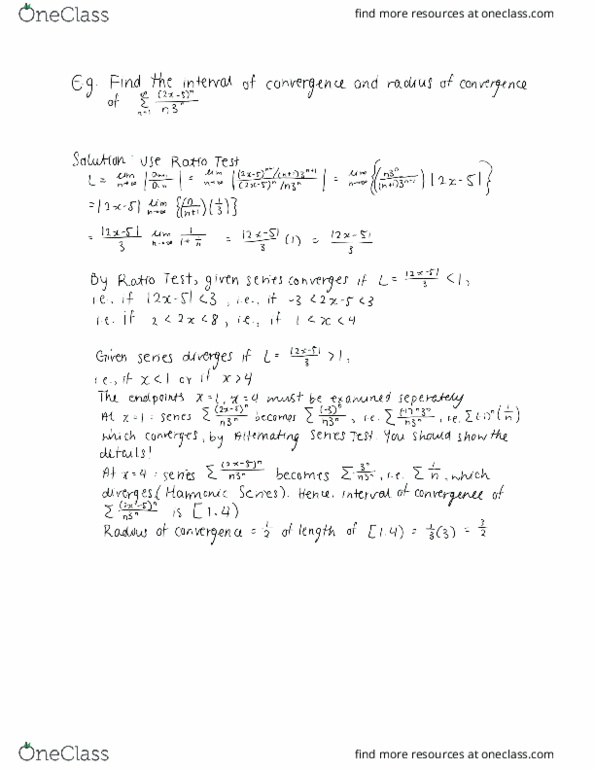 OneClass
find more resources at oneclass.com
E.g. Find the interval of convergence and radius of convergence
of ∑_{n=1}^{∞} (2x-5)^n / n3^n
Solution: Use Ratio Test
L = lim_{n→∞} |a_{n+1}/a_n| = lim_{n→∞} |(2x-5)^{n+1}/(n+1)3^{n+1} / (2x-5)^n/n3^n| = lim_{n→∞} {(n3^n/(n+1)3^{n+1}) |2x-5|}
= |2x-5| lim_{n→∞} {(n/(n+1))(1/3)}
= |2x-5|/3 lim_{n→∞} 1/(1+1/n) = |2x-5|/3 (1) = |2x-5|/3
By Ratio Test, given series converges if L = |2x-5|/3 < 1,
i.e., if |2x-5| < 3, i.e., if -3 < 2x-5 < 3
i.e. if 2 < 2x < 8, i.e., if 1 < x < 4
Given series diverges if L = |2x-5|/3 > 1,
i.e., if x < 1 or if x > 4
The endpoints x=1, x=4 must be examined seperately
At x=1: series ∑ (2x-5)^n/n3^n becomes ∑ (-3)^n/n3^n, i.e. ∑ (-1)^n 3^n/n3^n, i.e. ∑(-1)^n (1/n)
which converges, by Alternating Series Test. You should show the
details!
At x=4: series ∑ (2x-5)^n/n3^n becomes ∑ 3^n/n3^n, i.e. ∑ 1/n, which
diverges (Harmonic Series). Hence, interval of convergence of
∑ (2x-5)^n/n3^n is [1,4)
Radius of convergence = 1/2 of length of [1,4) = (3) = 3/2
OneClass
find more resources at oneclass.com